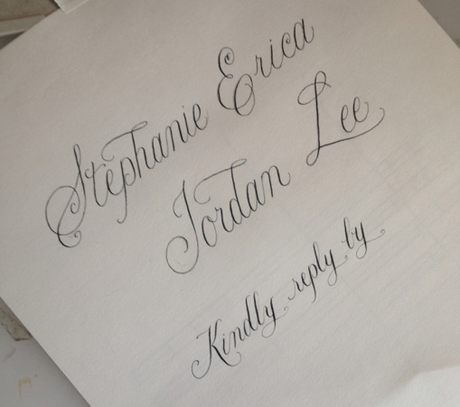 Stephanie Erica
Jordan Lee
Kindly reply by